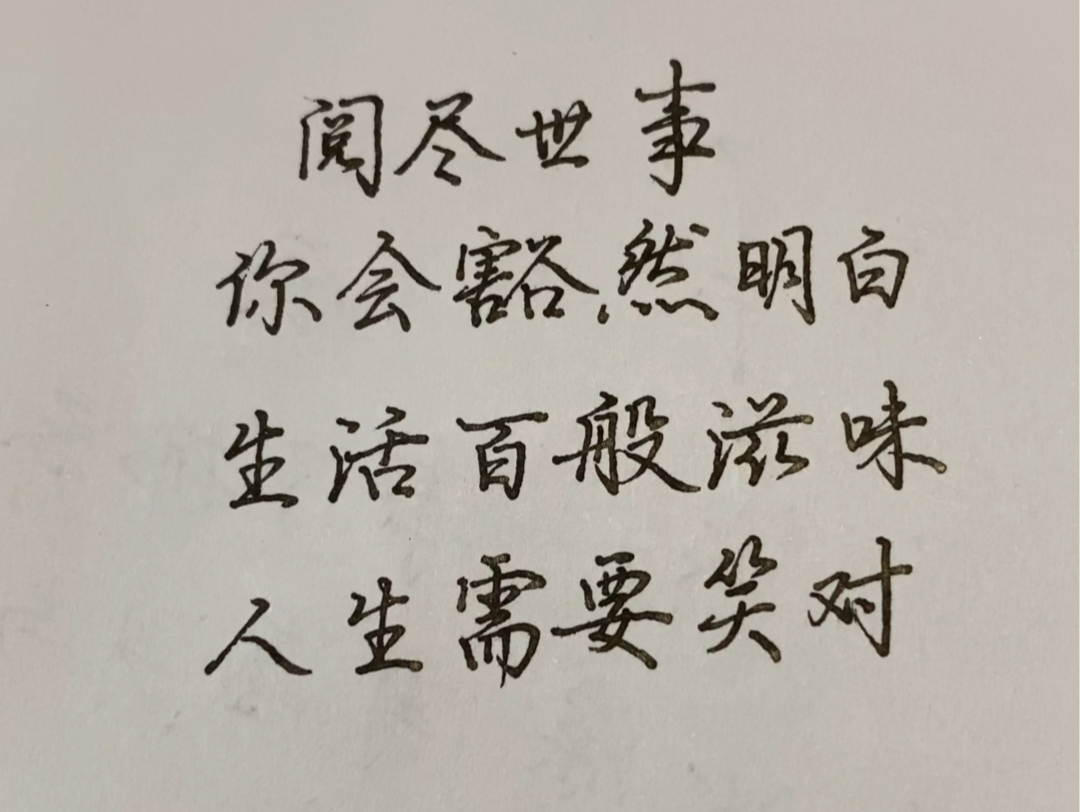 阅尽世事
你会豁然明白
生活百般滋味
人生需要笑对